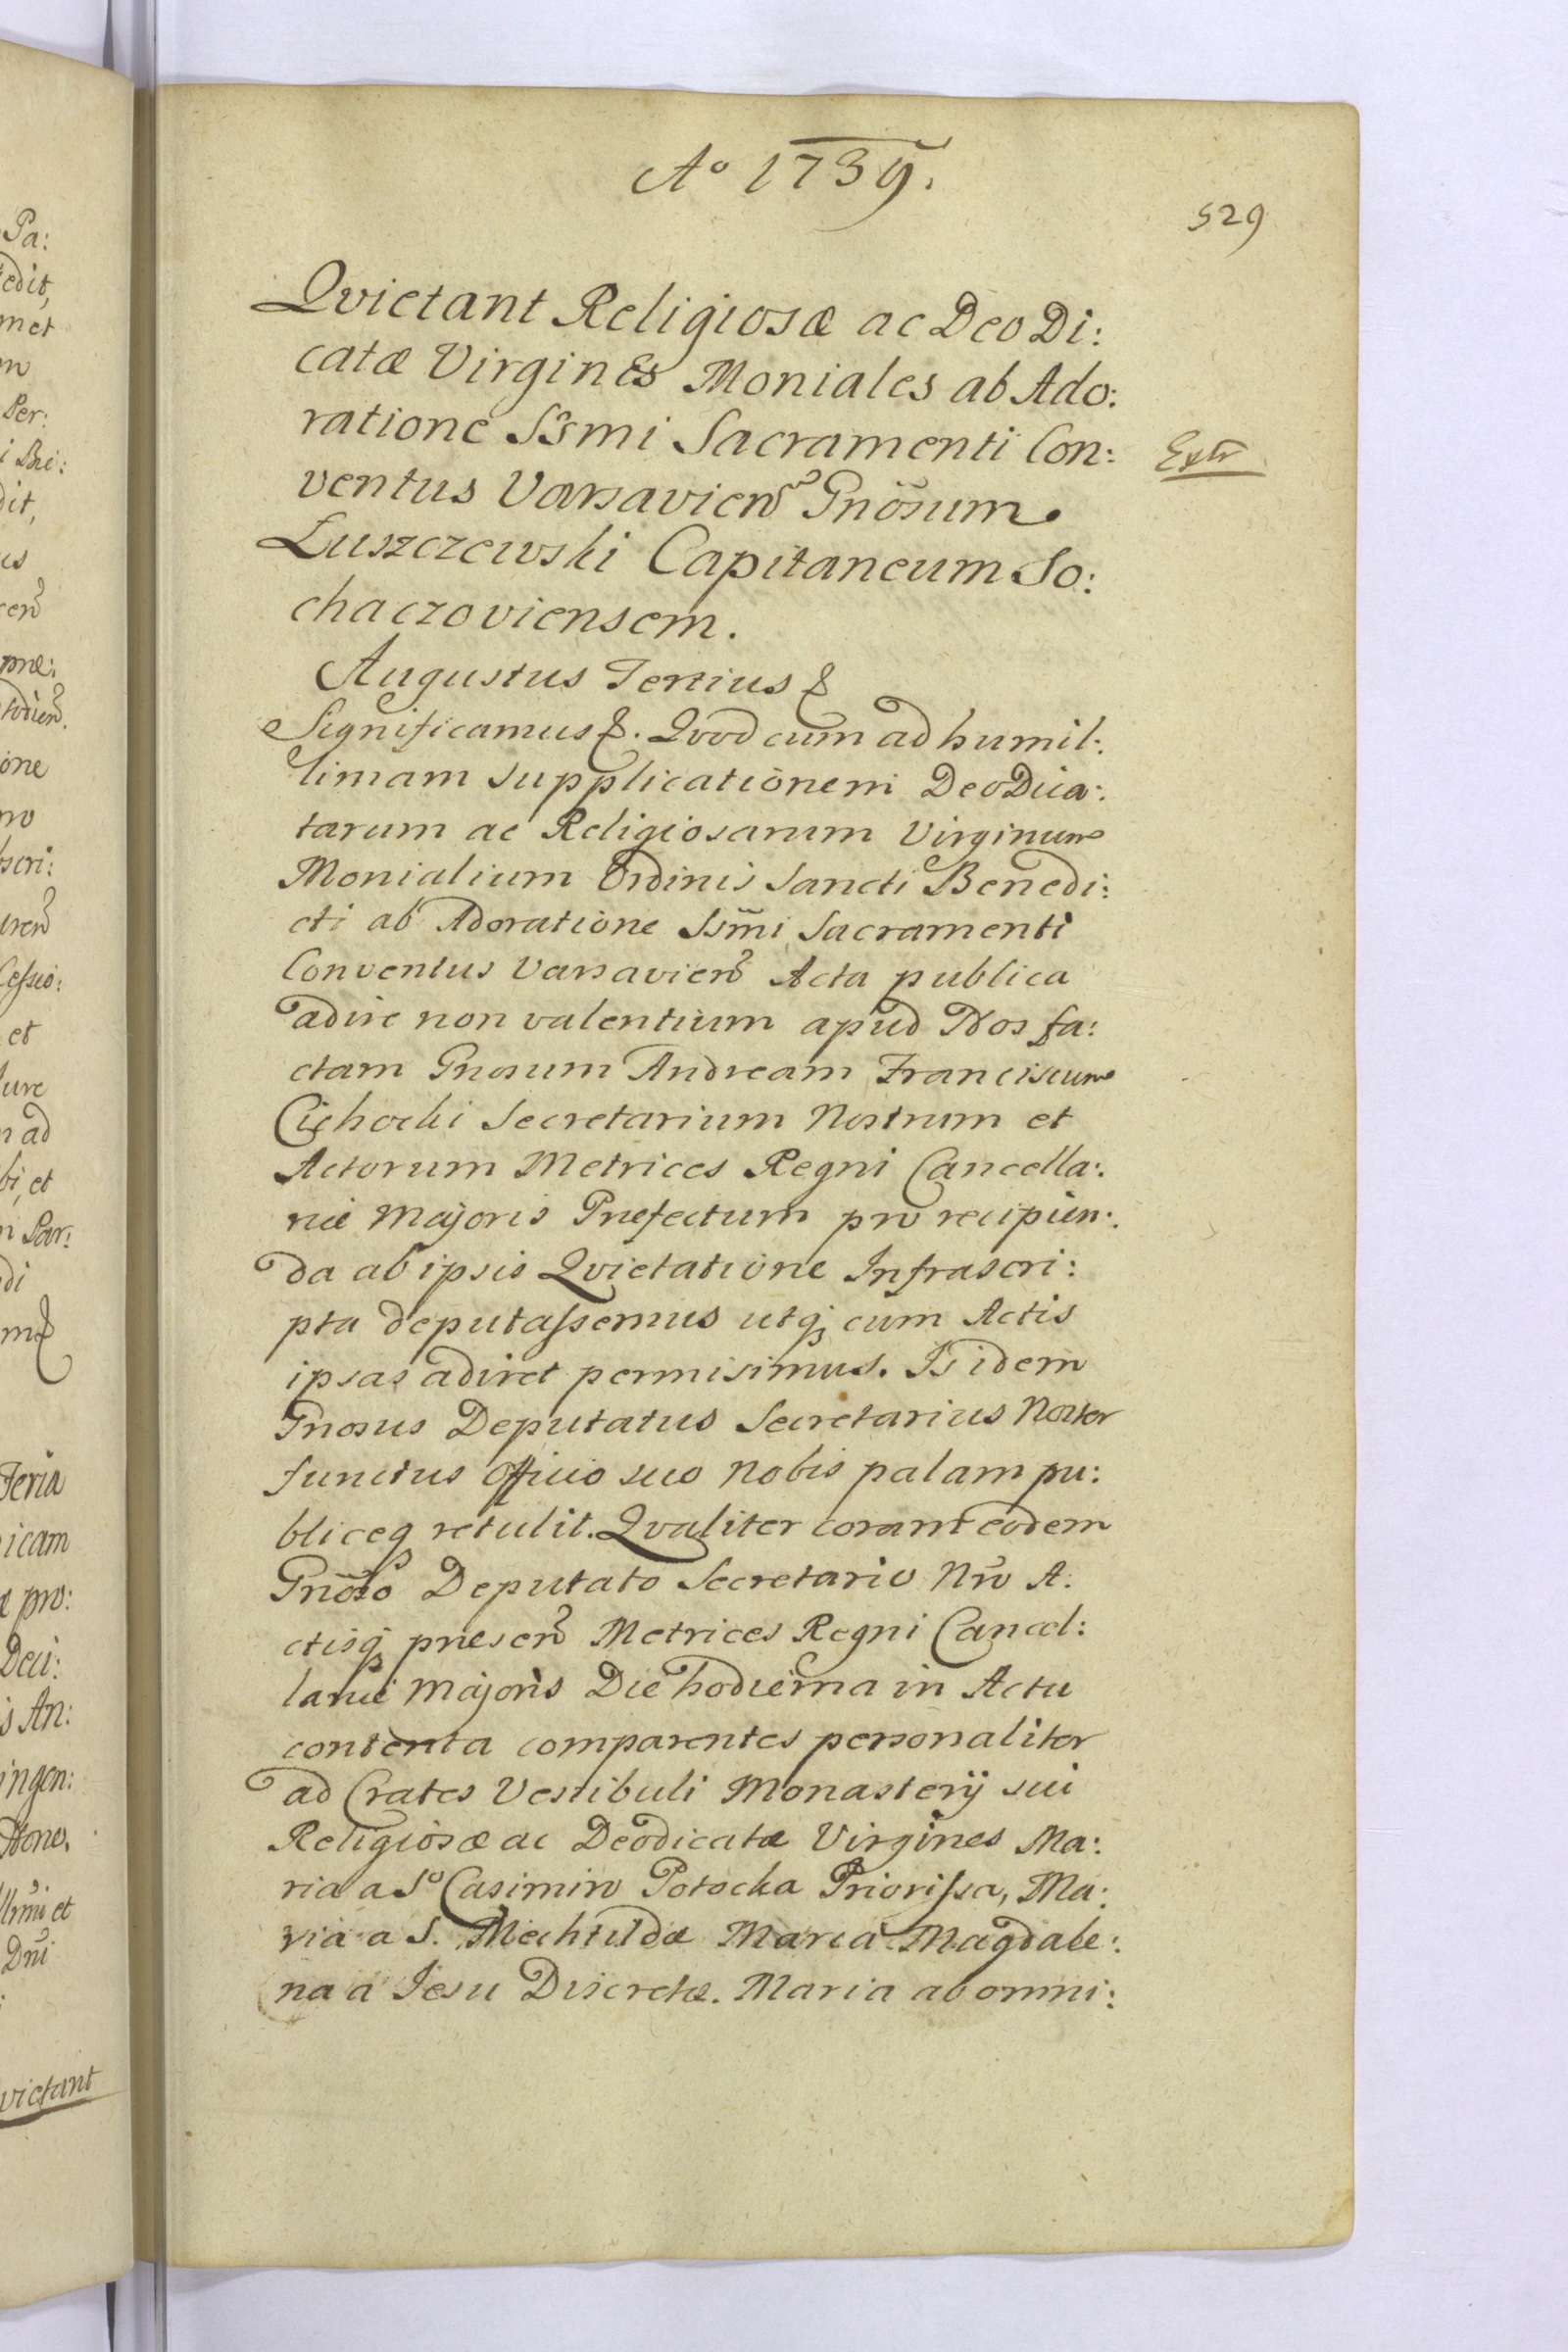 Ao 1739.
529
Qvietant Religiosæ ac Deo Di:
catæ Virgines Moniales ab Ado:
ratione Ssmi Sacramenti Con:
Extr
ventus Varsavien Gnosum
Łuszczewski Capitaneum So:
chaczoviensem.
Augustus Tertius &
Significamus &. Qvod cum ad humil:
limam supplicationem Deo Dica:
tarum ac Religiosarum Virginum
Monialium Ordinis Sancti Benedi:
cti ab Adoratione Ssmi Sacramenti
Conventus Varsavien Acta publica
adire non valentium apud Nos fa:
ctam Gnosum Andream Franciscum
Cichocki Secretarium Nostrum et
Actorum Metrices Regni Cancella:
riæ Majoris Præfectum pro recipien:
da ab ipsis Qvietatione Infrascri:
pta deputassemus utq cum Actis
ipsas adiret permisimus. Is idem
Gnosus Deputatus Secretarius Noster
functus Officio suo Nobis palam pu:
bliceq retulit. Qvaliter coram eodem
Gnoso Deputato Secretario Nro A:
ctisq præsen Metrices Regni Cancel:
lariæ Majoris Die hodierna in Actu
contenta comparentes personaliter
ad Crates Vestibuli Monasterij sui
Religiosæ ac Deodicatæ Virgines Ma:
ria a So Casimiro Potocka Priorissa, Ma:
ria a S. Mechtilda Maria Magdale:
na a Jesu Discretæ. Maria ab omni:
Pa:
edit,
met
Per:
dit,
one
scri:
Cessio:
et
Jure
n ad
bi, et
di
Feria
icam
pro:
Deci:
is An:
ingen:
et
Dni
vietant